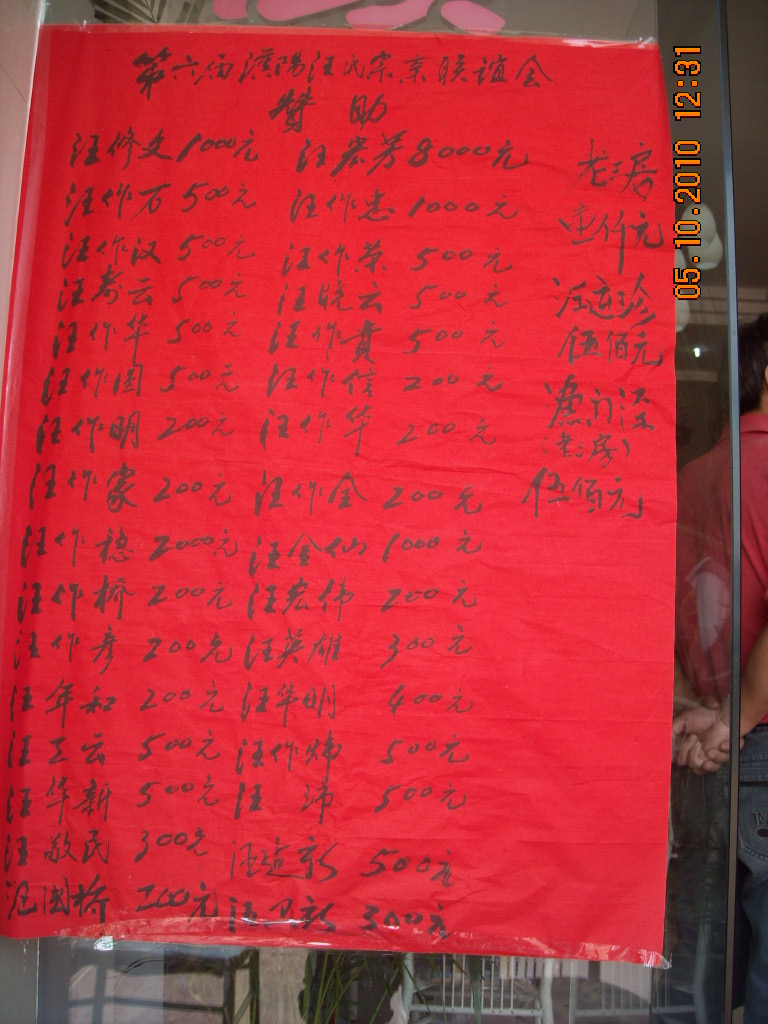 第六届濮阳汪氏宗亲联谊会
赞助
汪修文 1000元
汪作万 500元
汪作汉 500元
汪寿云 500元
汪作华 500元
汪作国 500元
汪作明 200元
汪作家 200元
汪作稳 2000元
汪作桥 200元
汪作彦 200元
汪年和 200元
汪卫云 500元
汪华新 500元
汪敬民 300元
汪国桥 200元
汪宏芳 8000元
汪作忠 1000元
汪作荣 500元
汪晓云 500元
汪作贵 500元
汪作信 200元
汪作华 200元
汪作全 200元
汪金仙 1000元
汪宏伟 200元
汪英雄 300元
汪华明 400元
汪作炜 500元
汪 500元
汪道新 500元
汪卫新 300元
老三房
仟元
汪莲珍
伍佰元
(老三房)
伍佰元
05.10.2010 12:31